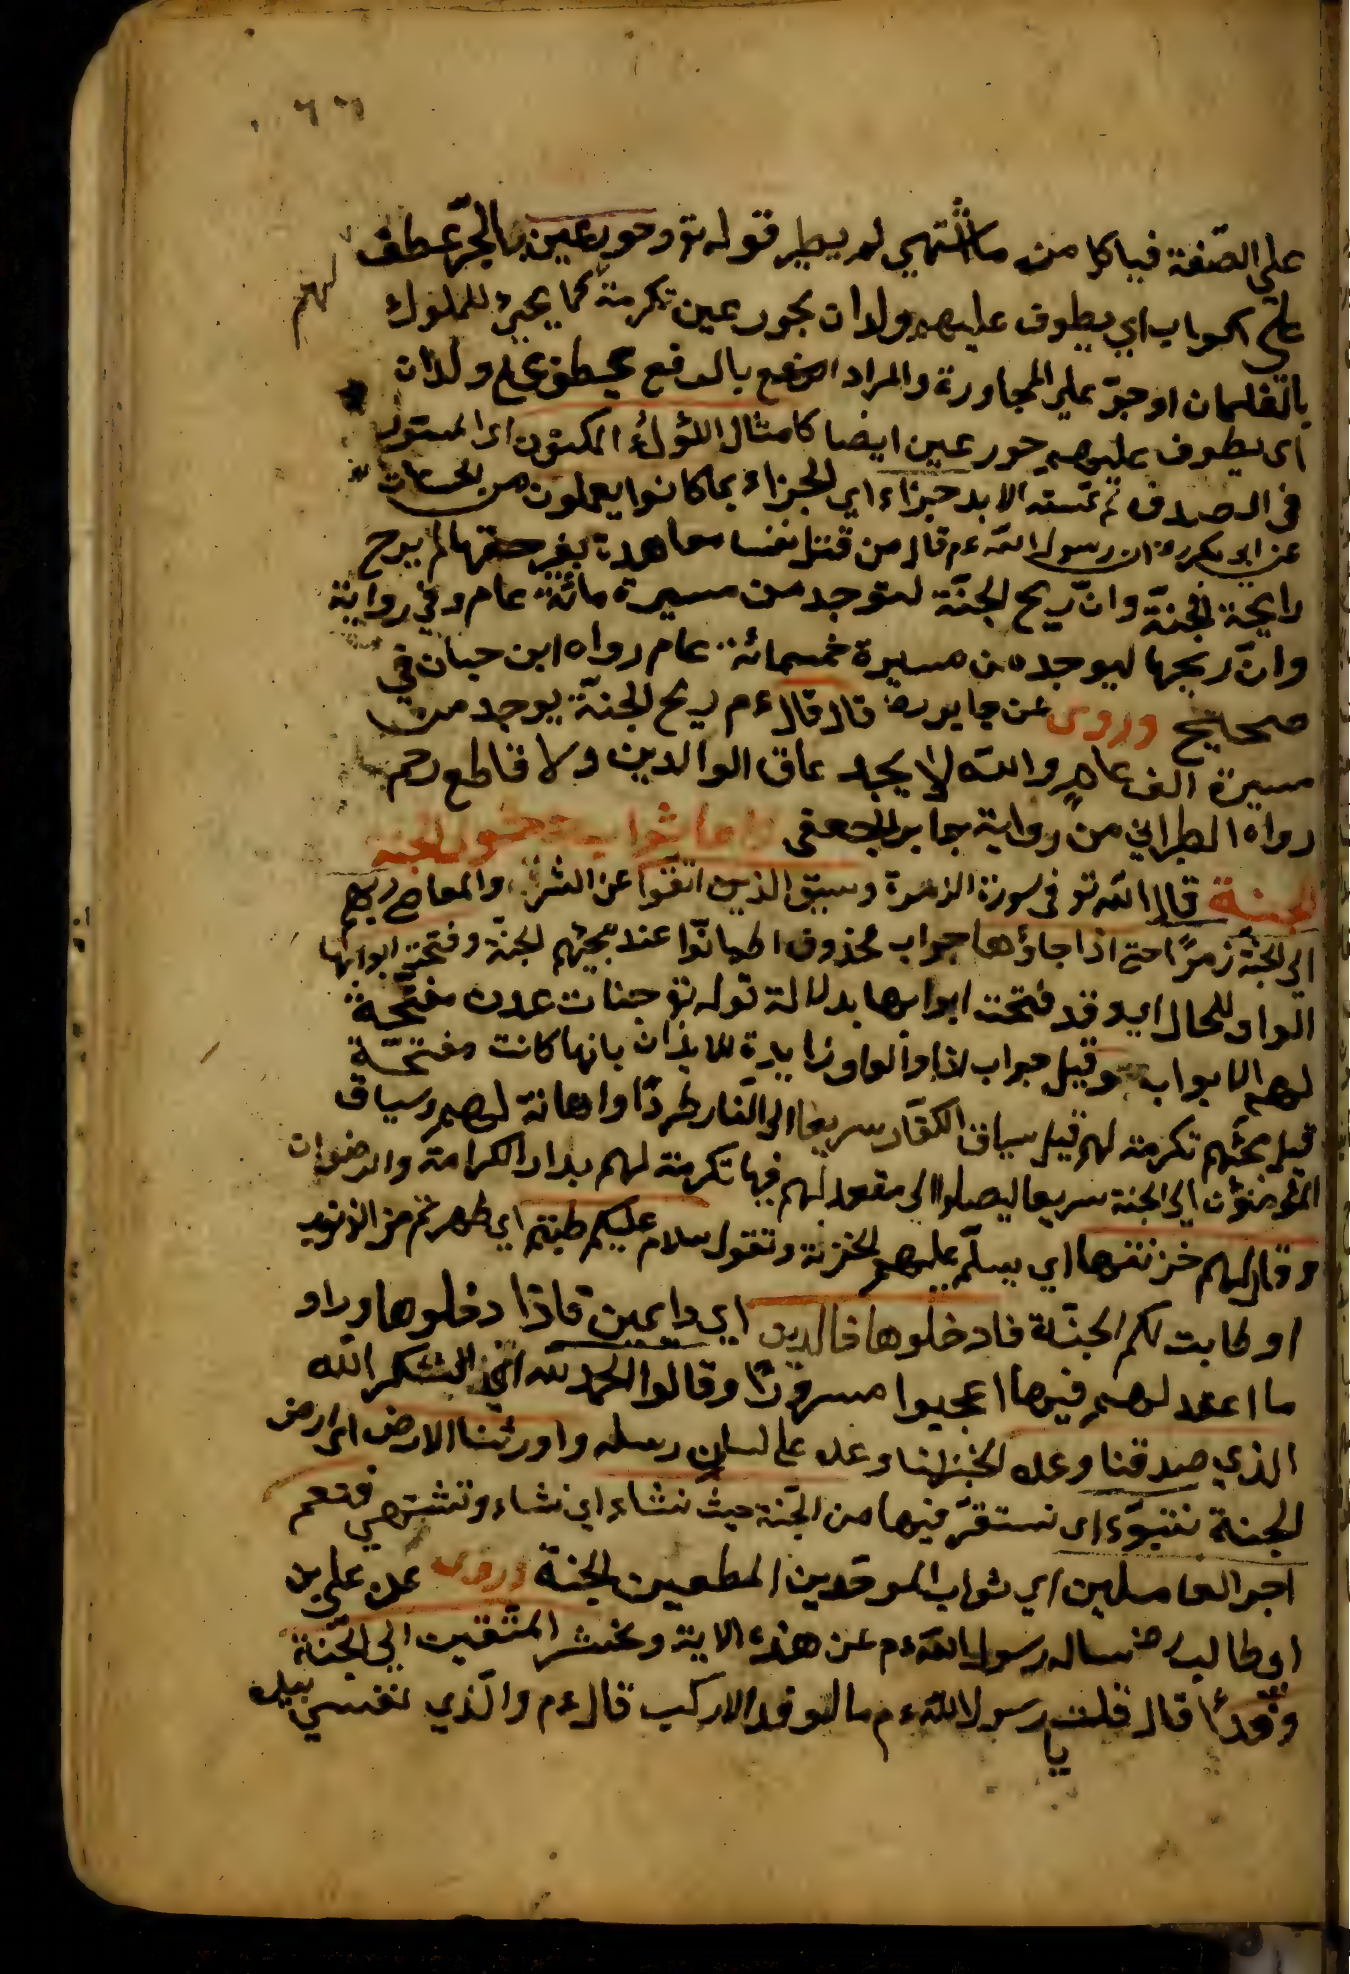 ٦٦
على الصفة فياكل من ما اشتهى لم يطير قوله تع وحور عين بالجر عطف
لهم
على اكواب اي يطوف عليهم ولدان بحور عين تكرمة كما يجئ للملوك
بالغلمان او جر على المجاورة والمراد بالرفع عطف على ولدان
اى يطوف عليهم حور عين ايضا كامثال اللؤلؤ المكنون اى المستور
في الصدف لم تمسه الايد جزاء اي الجزاء بما كانوا يعملون من الحسنات
عن ابي بكر رض ان رسول الله ءم قال من قتل نفسا معاهدة بغير حقها لم يرح
رايحة الجنة وان ريح الجنة لتوجد من مسيرة مائة عام وفي رواية
وان ريحها ليوجد من مسيرة خمسمائة عام رواه ابن حبان في
صحيح وروى عن جابر رض قال قال ءم ريح الجنة يوجد من
مسيرة الف عام والله لا يجد عاق الوالدين ولا قاطع رحم
رواه الطبراني من رواية جابر الجعفى دخول الجنة
الجنة قال الله تع في سورة الزمرة وسيق الذين اتقوا عن الشرك والمعاصي ربهم
الى الجنة زمرًا حتى اذا جاؤها جواب محذوف اطمانوا عند مجيئهم الجنة وفتحت ابوابها
الواو للحال ايد وقد فتحت ابوابها بدلالة قوله تع جنات عدن مفتحة
لهم الابواب وقيل جواب لاذا والواو زايدة للايذان بانها كانت مفتحة
قبل مجئهم تكرمة لهم قيل سياق الكفار سريعا الى النار طردًا واهانة لهم وسياق
المؤمنون الى الجنة سريعا ليصلوا الى مقعد لهم فيها تكرمة لهم بدار الكرامة والرضوان
وقال لهم خزنتها اي يسلم عليهم الخزنة وتقول سلام عليكم طبتم اي طهرتم من الذنوب
او طابت لكم الجنة فادخلوها خالدين اي دايمين فاذا دخلوها وراو
ما اعد لهم فيها اعجبوا مسرورًا وقالوا الحمد لله اي الشكر الله
الذي صدقنا وعده الخبزنا وعد على لسان رسله واورثنا الارض اى ارض
الجنة نتبوء اى نستقر فيها من الجنة حيث نشاء اي نشاء وتشتهي فنعم
اجر العاملين اي ثواب الموحدين المطعين الجنة وروى عن علي بن
ابي طالب رض سال رسول الله ءم عن هذه الاية ونحشر المتقين الى الجنة
وفدًا قال قلت يا رسول الله ءم ما الوفد الا ركب قال ءم والذي نفسي بيده